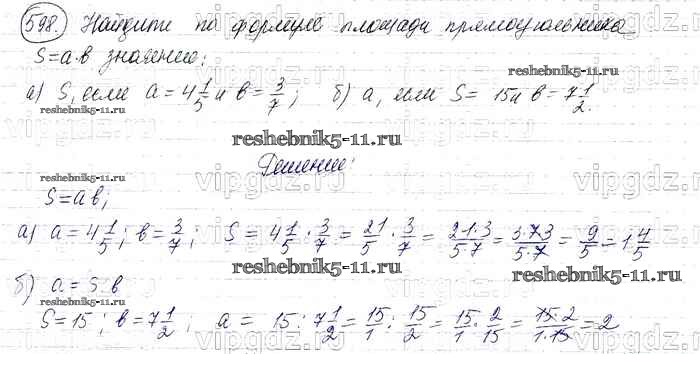 598. Найдите по формуле площади прямоугольника
S=a·в значение:
а) S, если a=4 1/5 и в=3/7; б) a, если S= 15 и в=7 1/2.
reshebnik5-11.ru
reshebnik5-11.ru
reshebnik5-11.ru
reshebnik5-11.ru
Решение:
S=ав;
а) a=4 1/5; в=3/7; S=4 1/5·3/7=21/5·3/7=21·3/5·7=3·7·3/5·7=9/5=1 4/5
reshebnik5-11.ru
reshebnik5-11.ru
б) a=S:в
S=15; в=7 1/2; a=15:7 1/2=15/1:15/2=15/1·2/15=15·2/1·15=2
vipgdz.ru
vipgdz.ru
vipgdz.ru